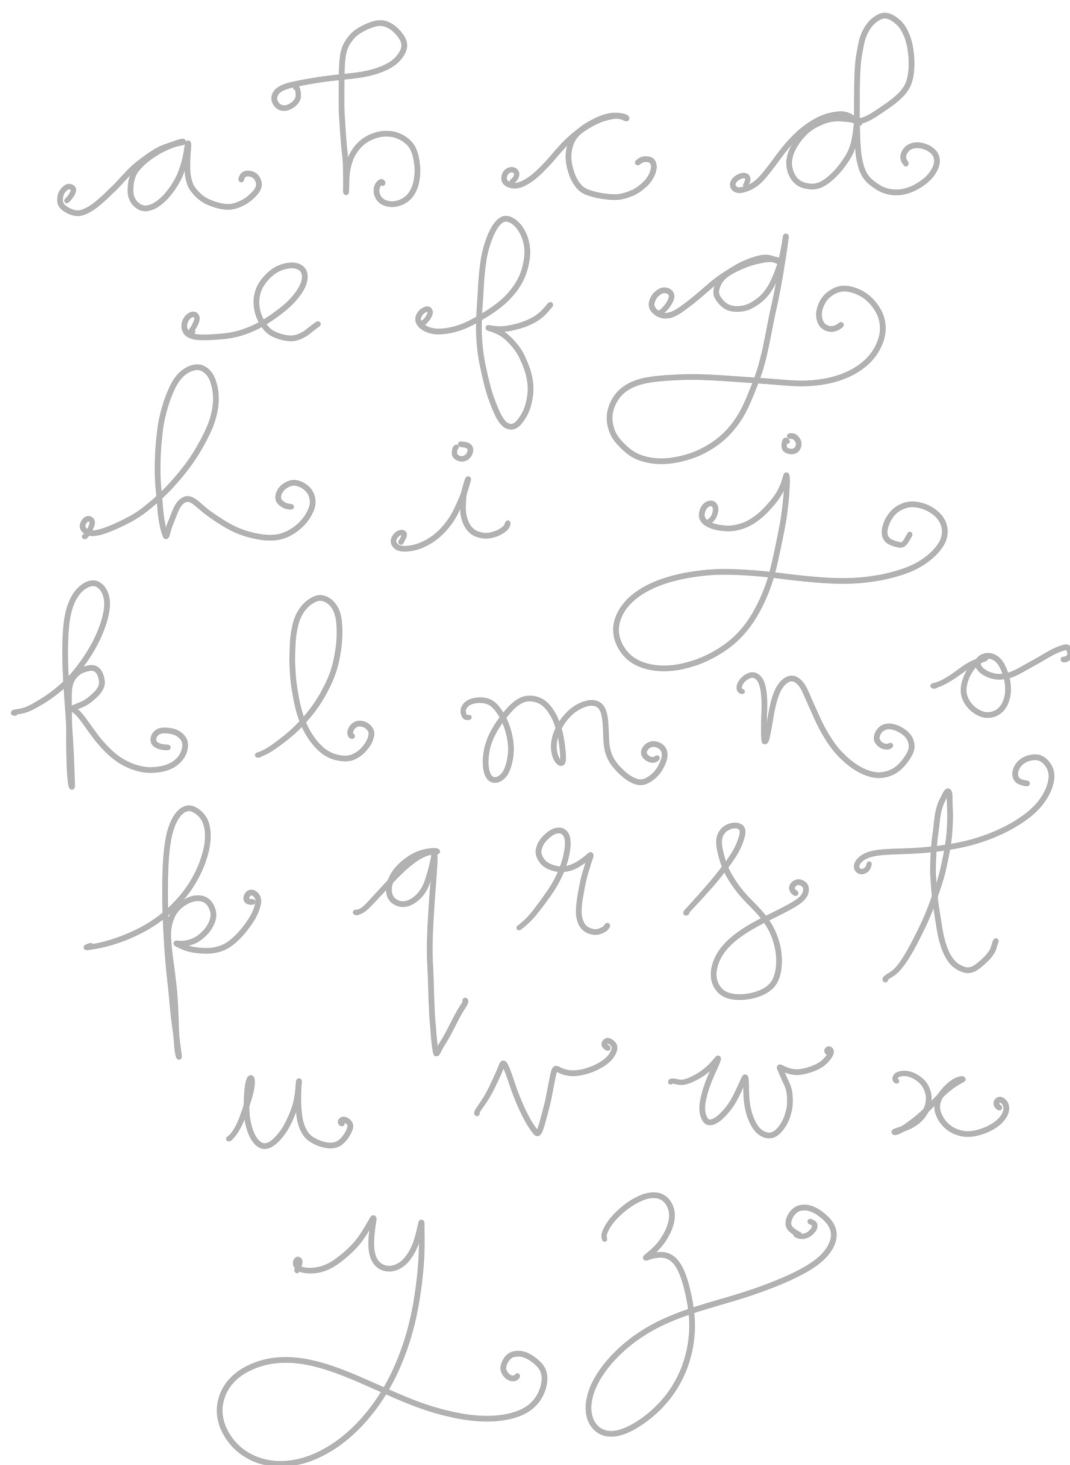 a b c d
e f g
h i j
k l m n o
p q r s t
u v w x
y z